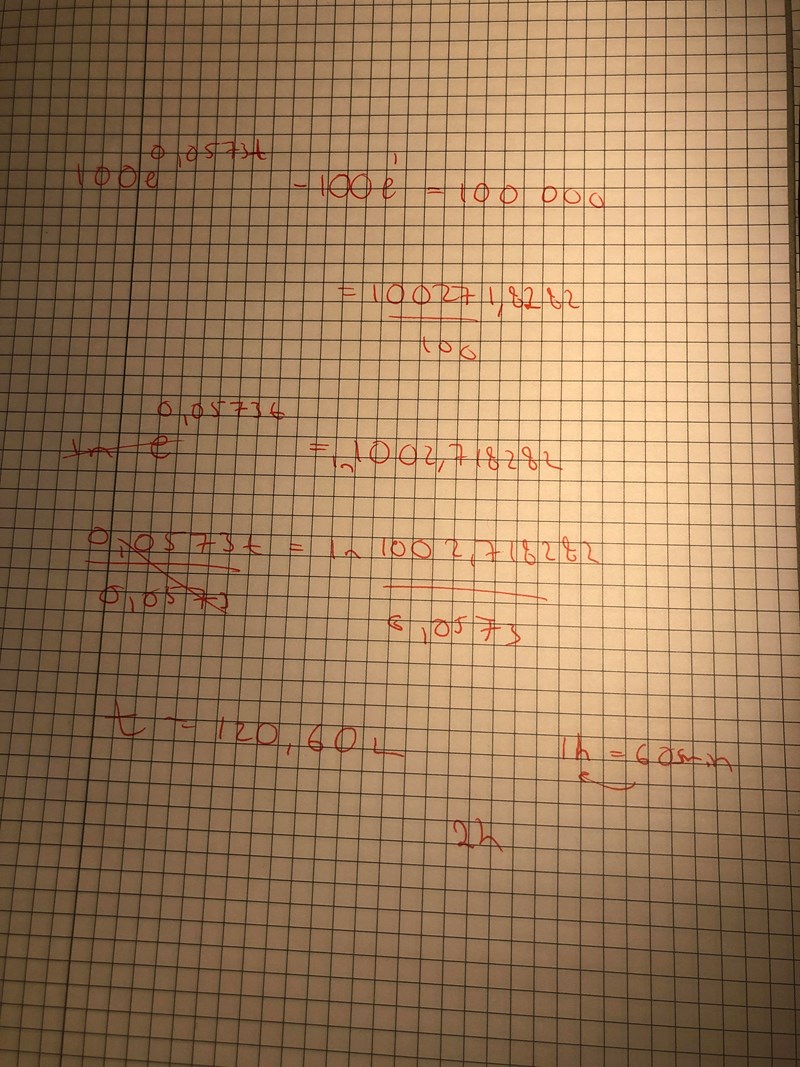 100e^0,0573t - 100e^1 = 100 000
= 100271,8282
100
ln e^0,0573t = ln 1002,718282
0,0573t = ln 1002,718282
0,0573 0,0573
t = 120,602
1h = 60min
2h